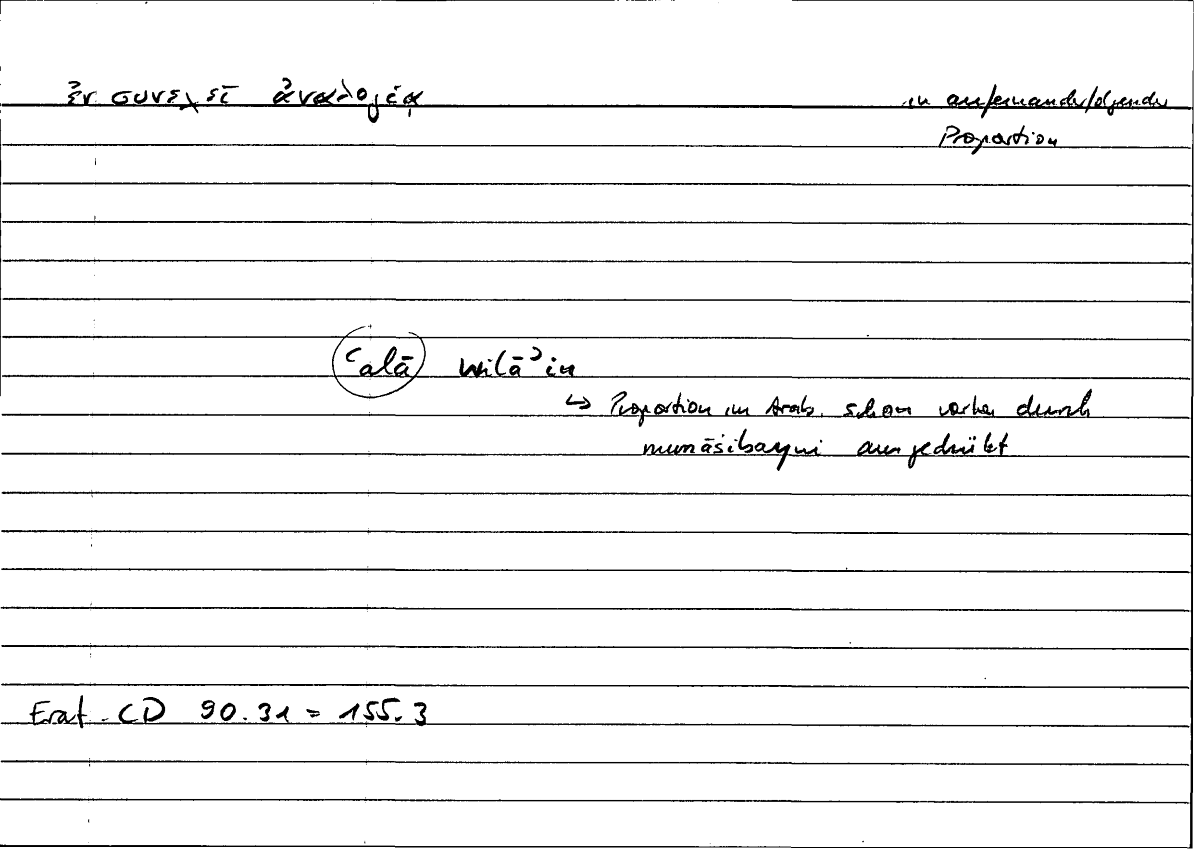 ἐν συνεχεῖ ἀναλογίᾳ in aufeinanderfolgender
Proportion
ʿalā wilāʾin
↳ Proportion im Arab. schon vorher durch
munāsibayni ausgedrückt
Erat. CD 90.31 = 155.3